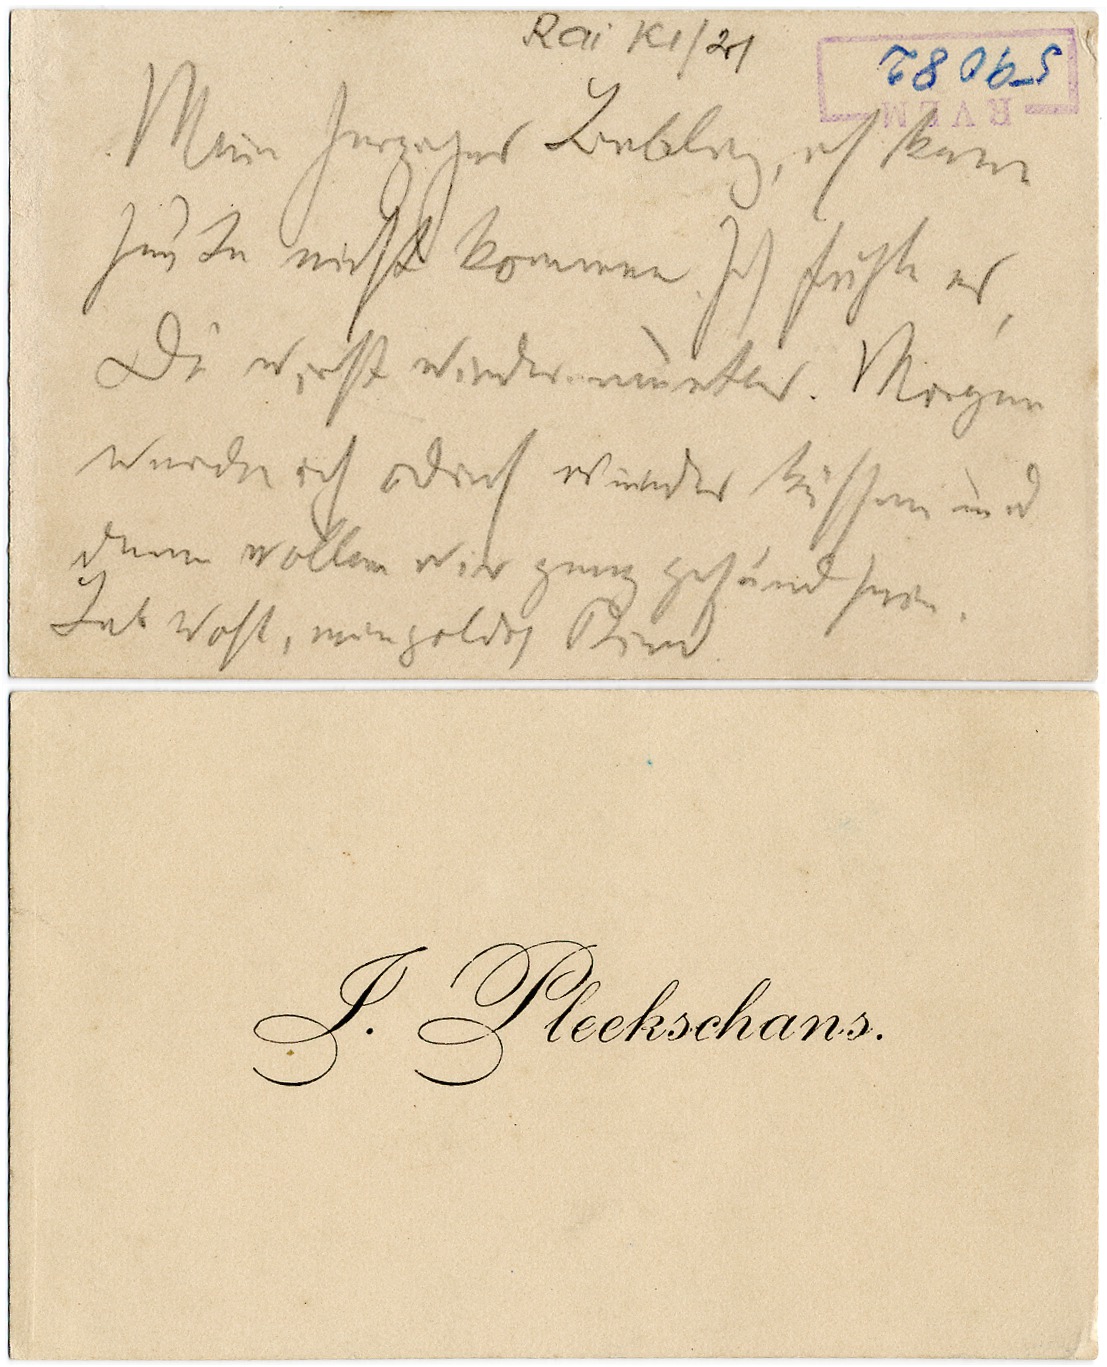 Rai K1/21
59082
RVEM
Mein herziger Liebling, ich kann
heute nicht kommen. Ich fühle es,
Du wirst wieder munter. Morgen
werde ich dich wieder küssen und
dann wollen wir ganz gesund sein.
Leb wohl, mein goldes Kind
J. Pleekschans.